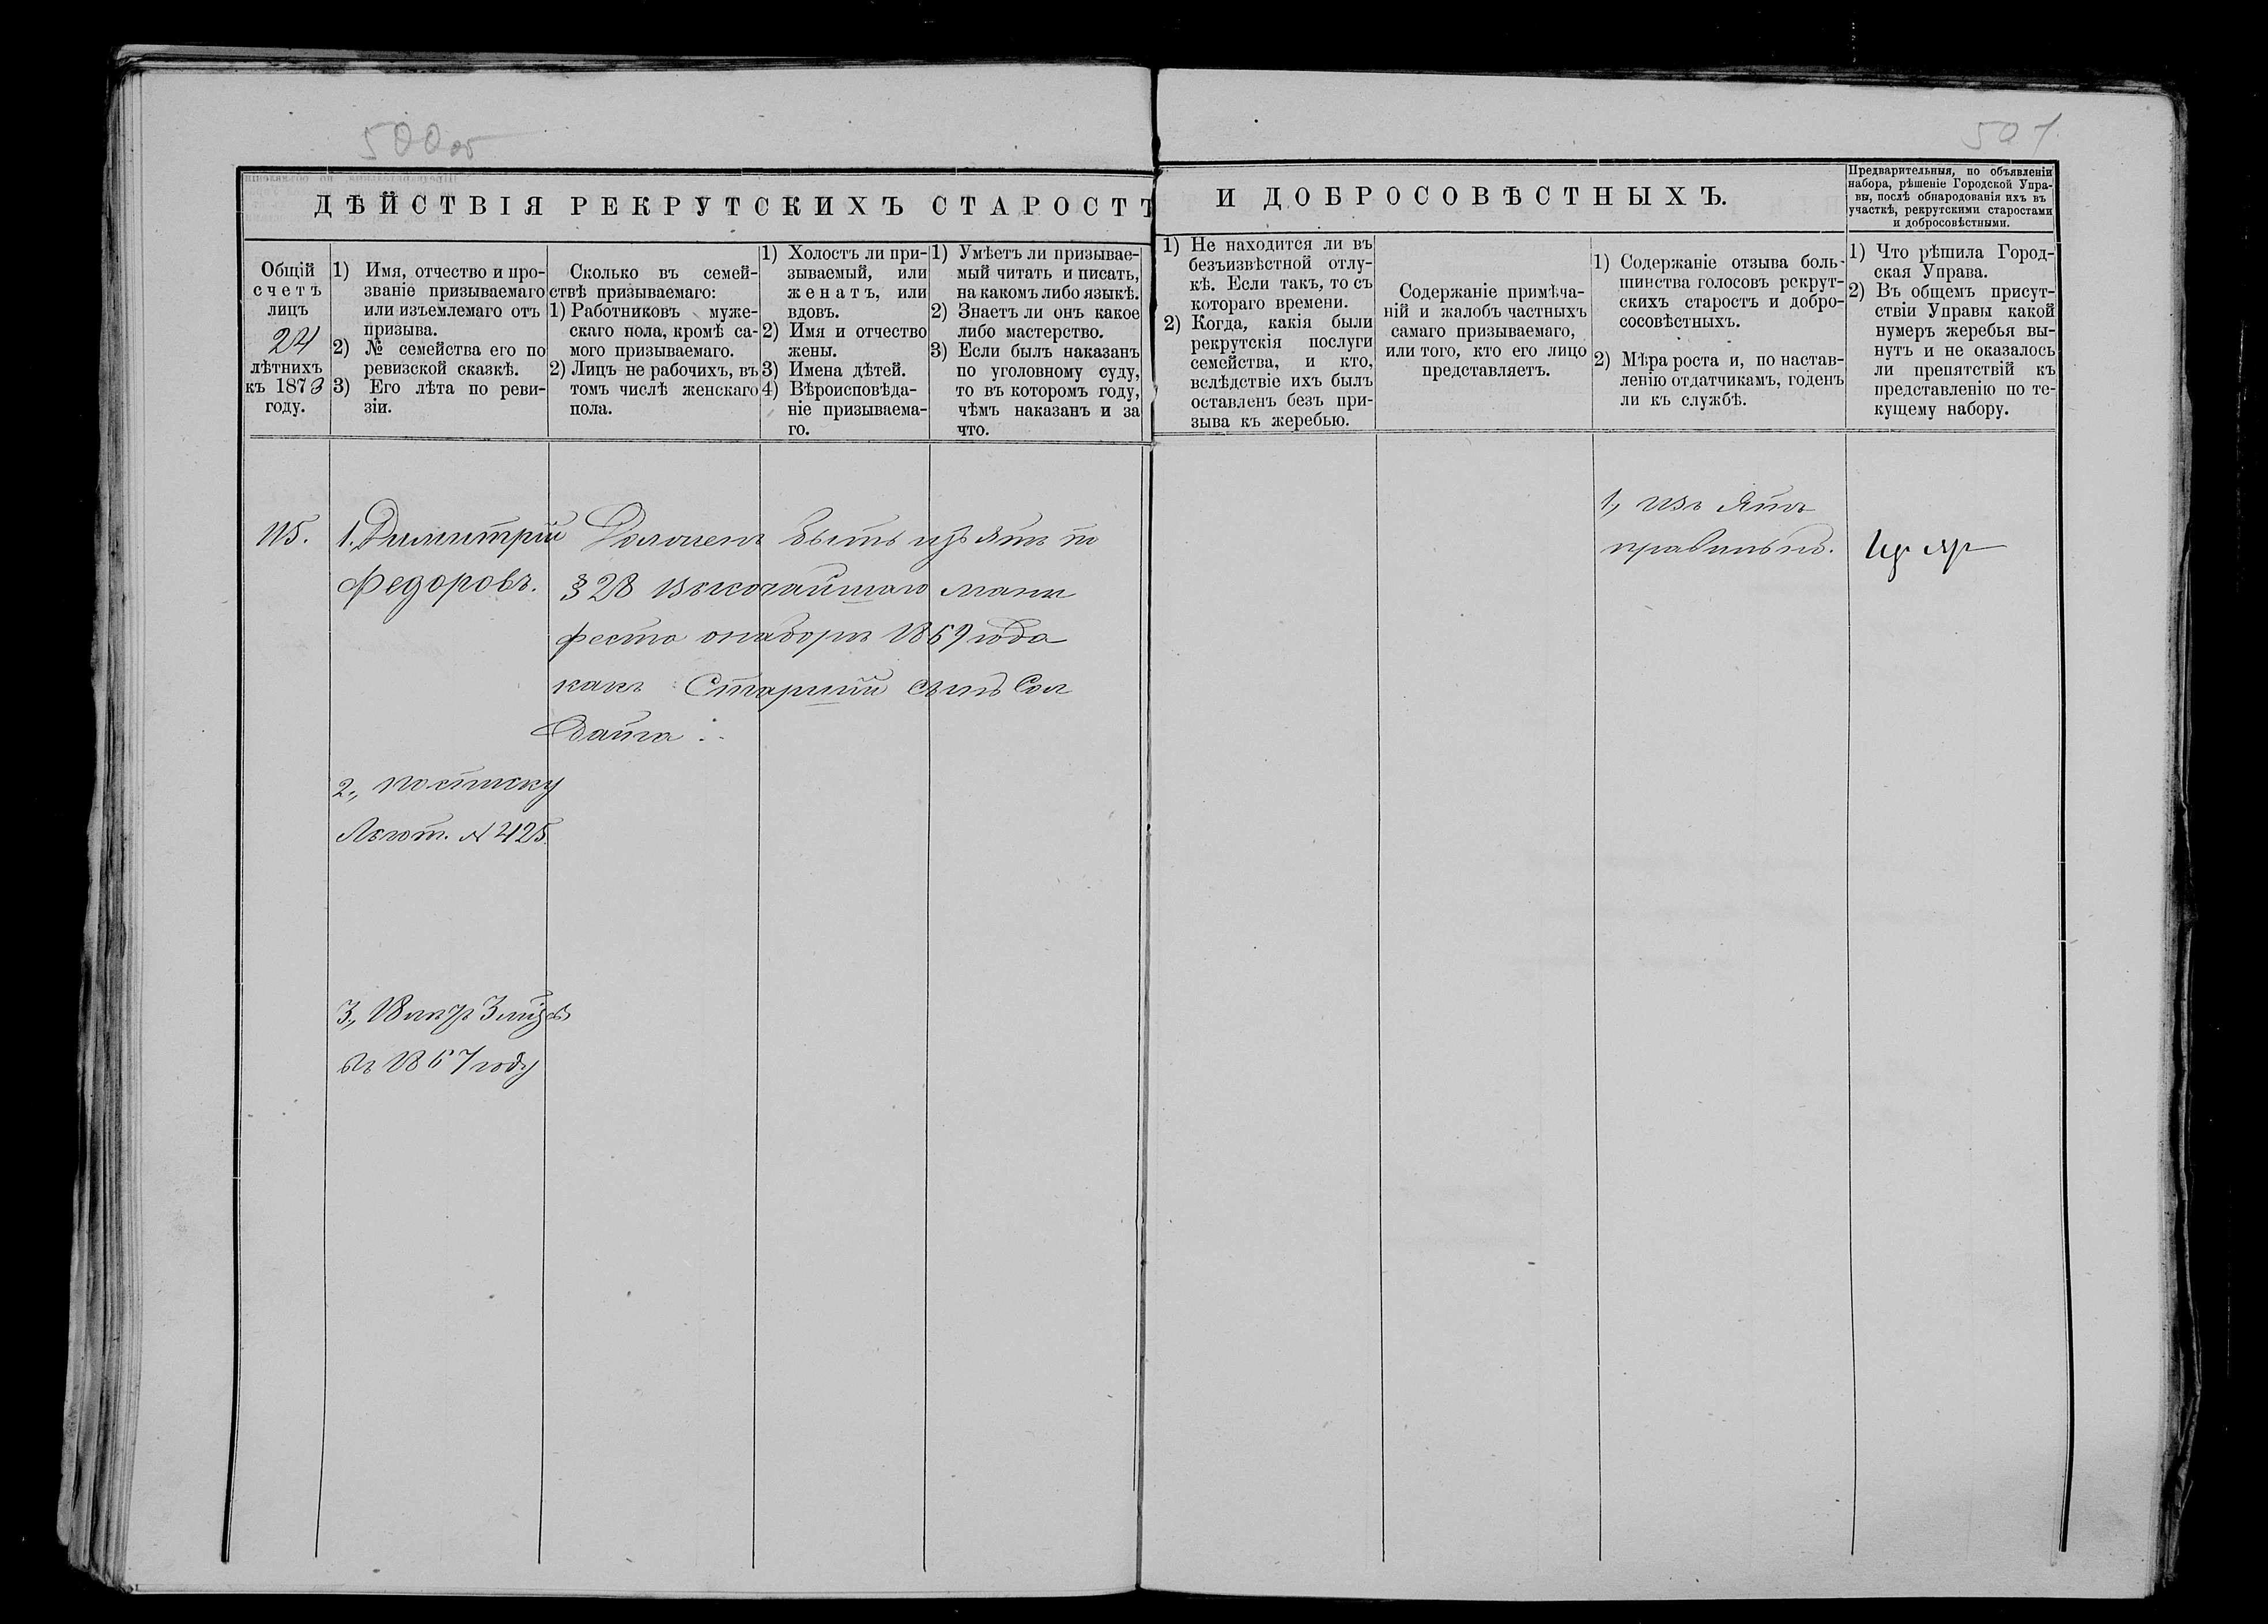 500об
501
ДѢЙСТВІЯ РЕКРУТСКИХЪ СТАРОСТЪ
И ДОБРОСОВѢСТНЫХЪ.
Предварительныя, по объявленіи
набора, рѣшеніе Городской Упра-
вы, послѣ обнародованія ихъ въ
участкѣ, рекрутскими старостами
и добросовѣстными.
Общій
счетъ
лицъ
24
лѣтнихъ
къ 1873
году.
1) Имя, отчество и про-
званіе призываемаго
или изъемлемаго отъ
призыва.
2) № семейства его по
ревизской сказкѣ.
3) Его лѣта по реви-
зіи.
Сколько въ семей-
ствѣ призываемаго:
1) Работниковъ муже-
скаго пола, кромѣ са-
мого призываемаго.
2) Лицъ не рабочихъ, въ
томъ числѣ женскаго
пола.
1) Холостъ ли при-
зываемый, или
женатъ, или
вдовъ.
2) Имя и отчество
жены.
3) Имена дѣтей.
4) Вѣроисповѣда-
ніе призываема-
го.
1) Умѣетъ ли призывае-
мый читать и писать,
на какомъ либо языкѣ.
2) Знаетъ ли онъ какое
либо мастерство.
3) Если былъ наказанъ
по уголовному суду,
то въ которомъ году,
чѣмъ наказанъ и за
что.
1) Не находится ли въ
безъизвѣстной отлу-
кѣ. Если такъ, то съ
котораго времени.
2) Когда, какія были
рекрутскія послуги
семейства, и кто,
вслѣдствіе ихъ былъ
оставленъ безъ при-
зыва къ жеребью.
Содержаніе примѣча-
ній и жалобъ частныхъ
самаго призываемаго,
или того, кто его лицо
представляетъ.
1) Содержаніе отзыва боль-
шинства голосовъ рекрут-
скихъ старостъ и добро-
сосовѣстныхъ.
2) Мѣра роста и, по настав-
ленію отдатчикамъ, годенъ
ли къ службѣ.
1) Что рѣшила Город-
ская Управа.
2) Въ общемъ присут-
ствіи Управы какой
нумеръ жеребья вы-
нутъ и не оказалось
ли препятствій къ
представленію по те-
кущему набору.
115.
1. Димитрій
Федоровъ.
Долженъ быть изъятъ по
§ 28 Высочайшаго мани
феста о наборѣ 1869 года
какъ Старшій сынъ Сол
дата
2., по списку
Льгот. № 425.
3., 18 лѣтъ 3 мѣс
въ 1867 году
1, изъ ятъ
правильно.